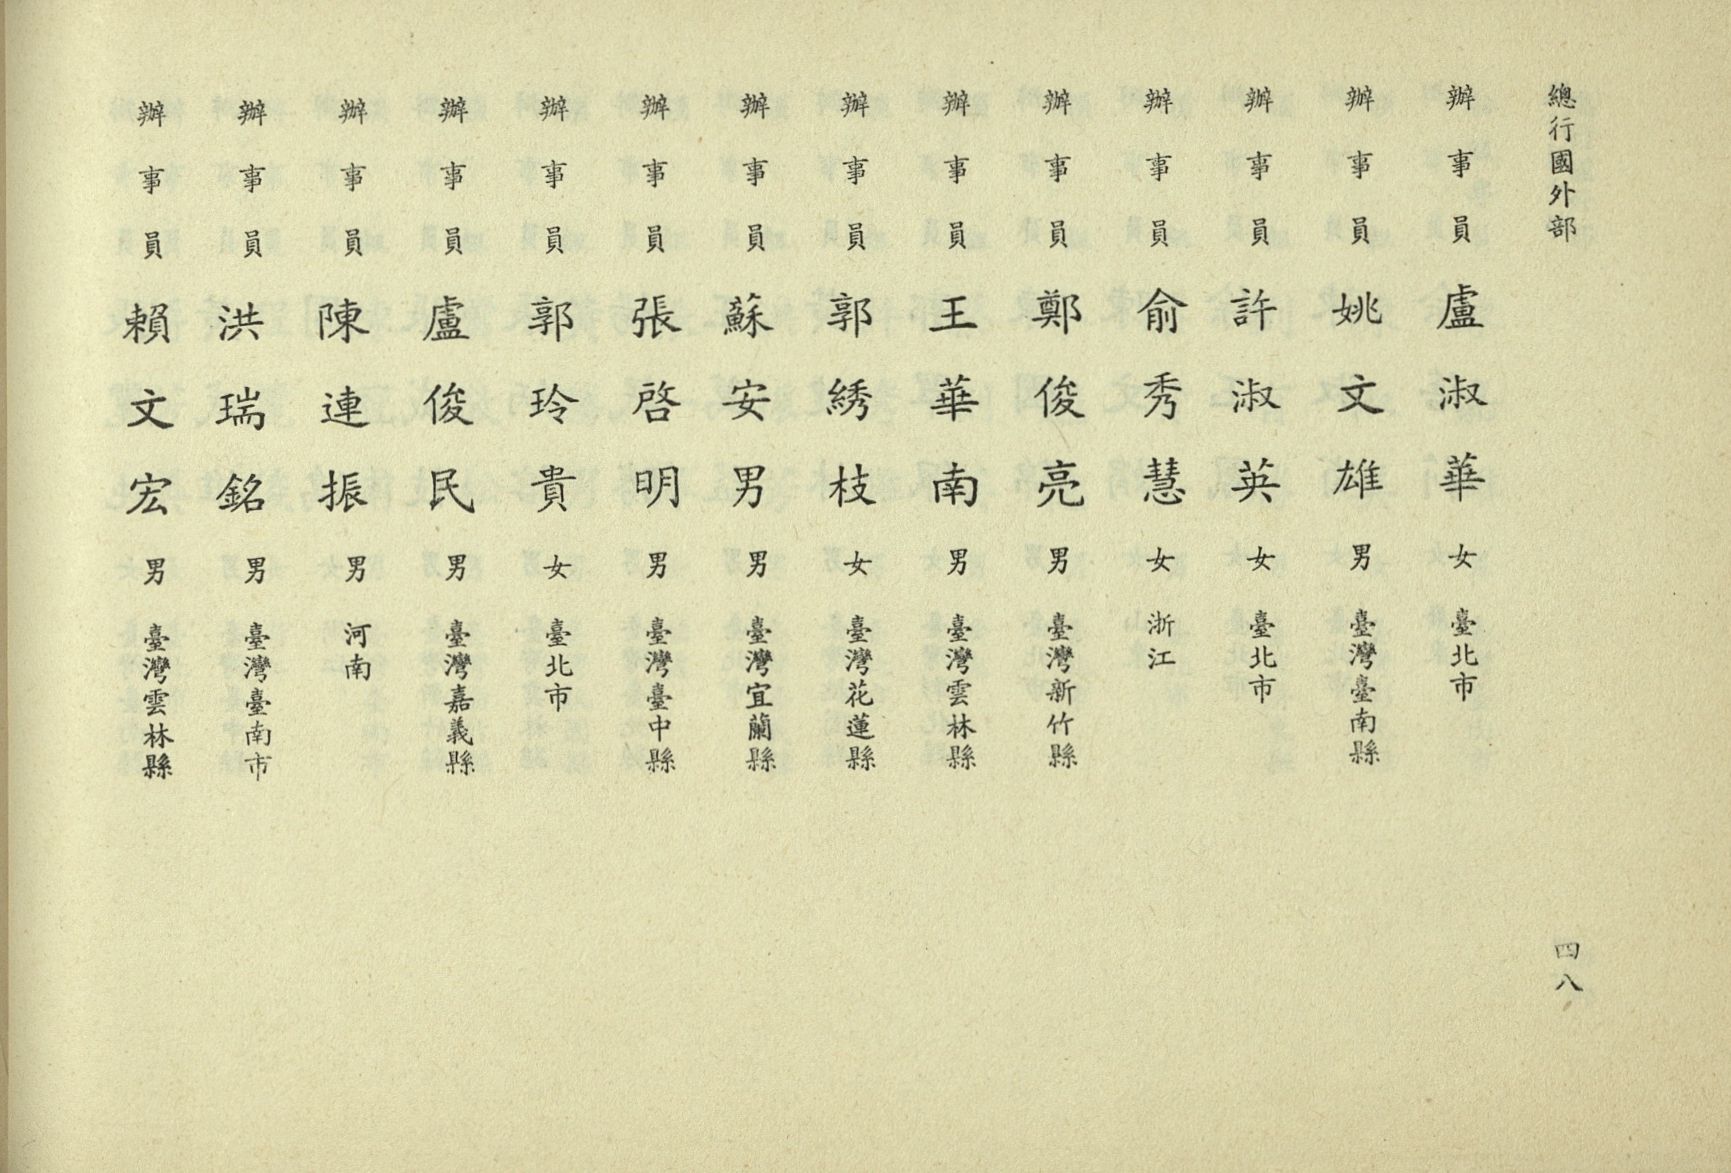 總行國外部
四八
辦事員 盧淑華 女 臺北市
辦事員 姚文雄 男 臺灣臺南縣
辦事員 許淑英 女 臺北市
辦事員 俞秀慧 女 浙江
辦事員 鄭俊亮 男 臺灣新竹縣
辦事員 王華南 男 臺灣雲林縣
辦事員 郭綉枝 女 臺灣花蓮縣
辦事員 蘇安男 男 臺灣宜蘭縣
辦事員 張啓明 男 臺灣臺中縣
辦事員 郭玲貴 女 臺北市
辦事員 盧俊民 男 臺灣嘉義縣
辦事員 陳連振 男 河南
辦事員 洪瑞銘 男 臺灣臺南市
辦事員 賴文宏 男 臺灣雲林縣